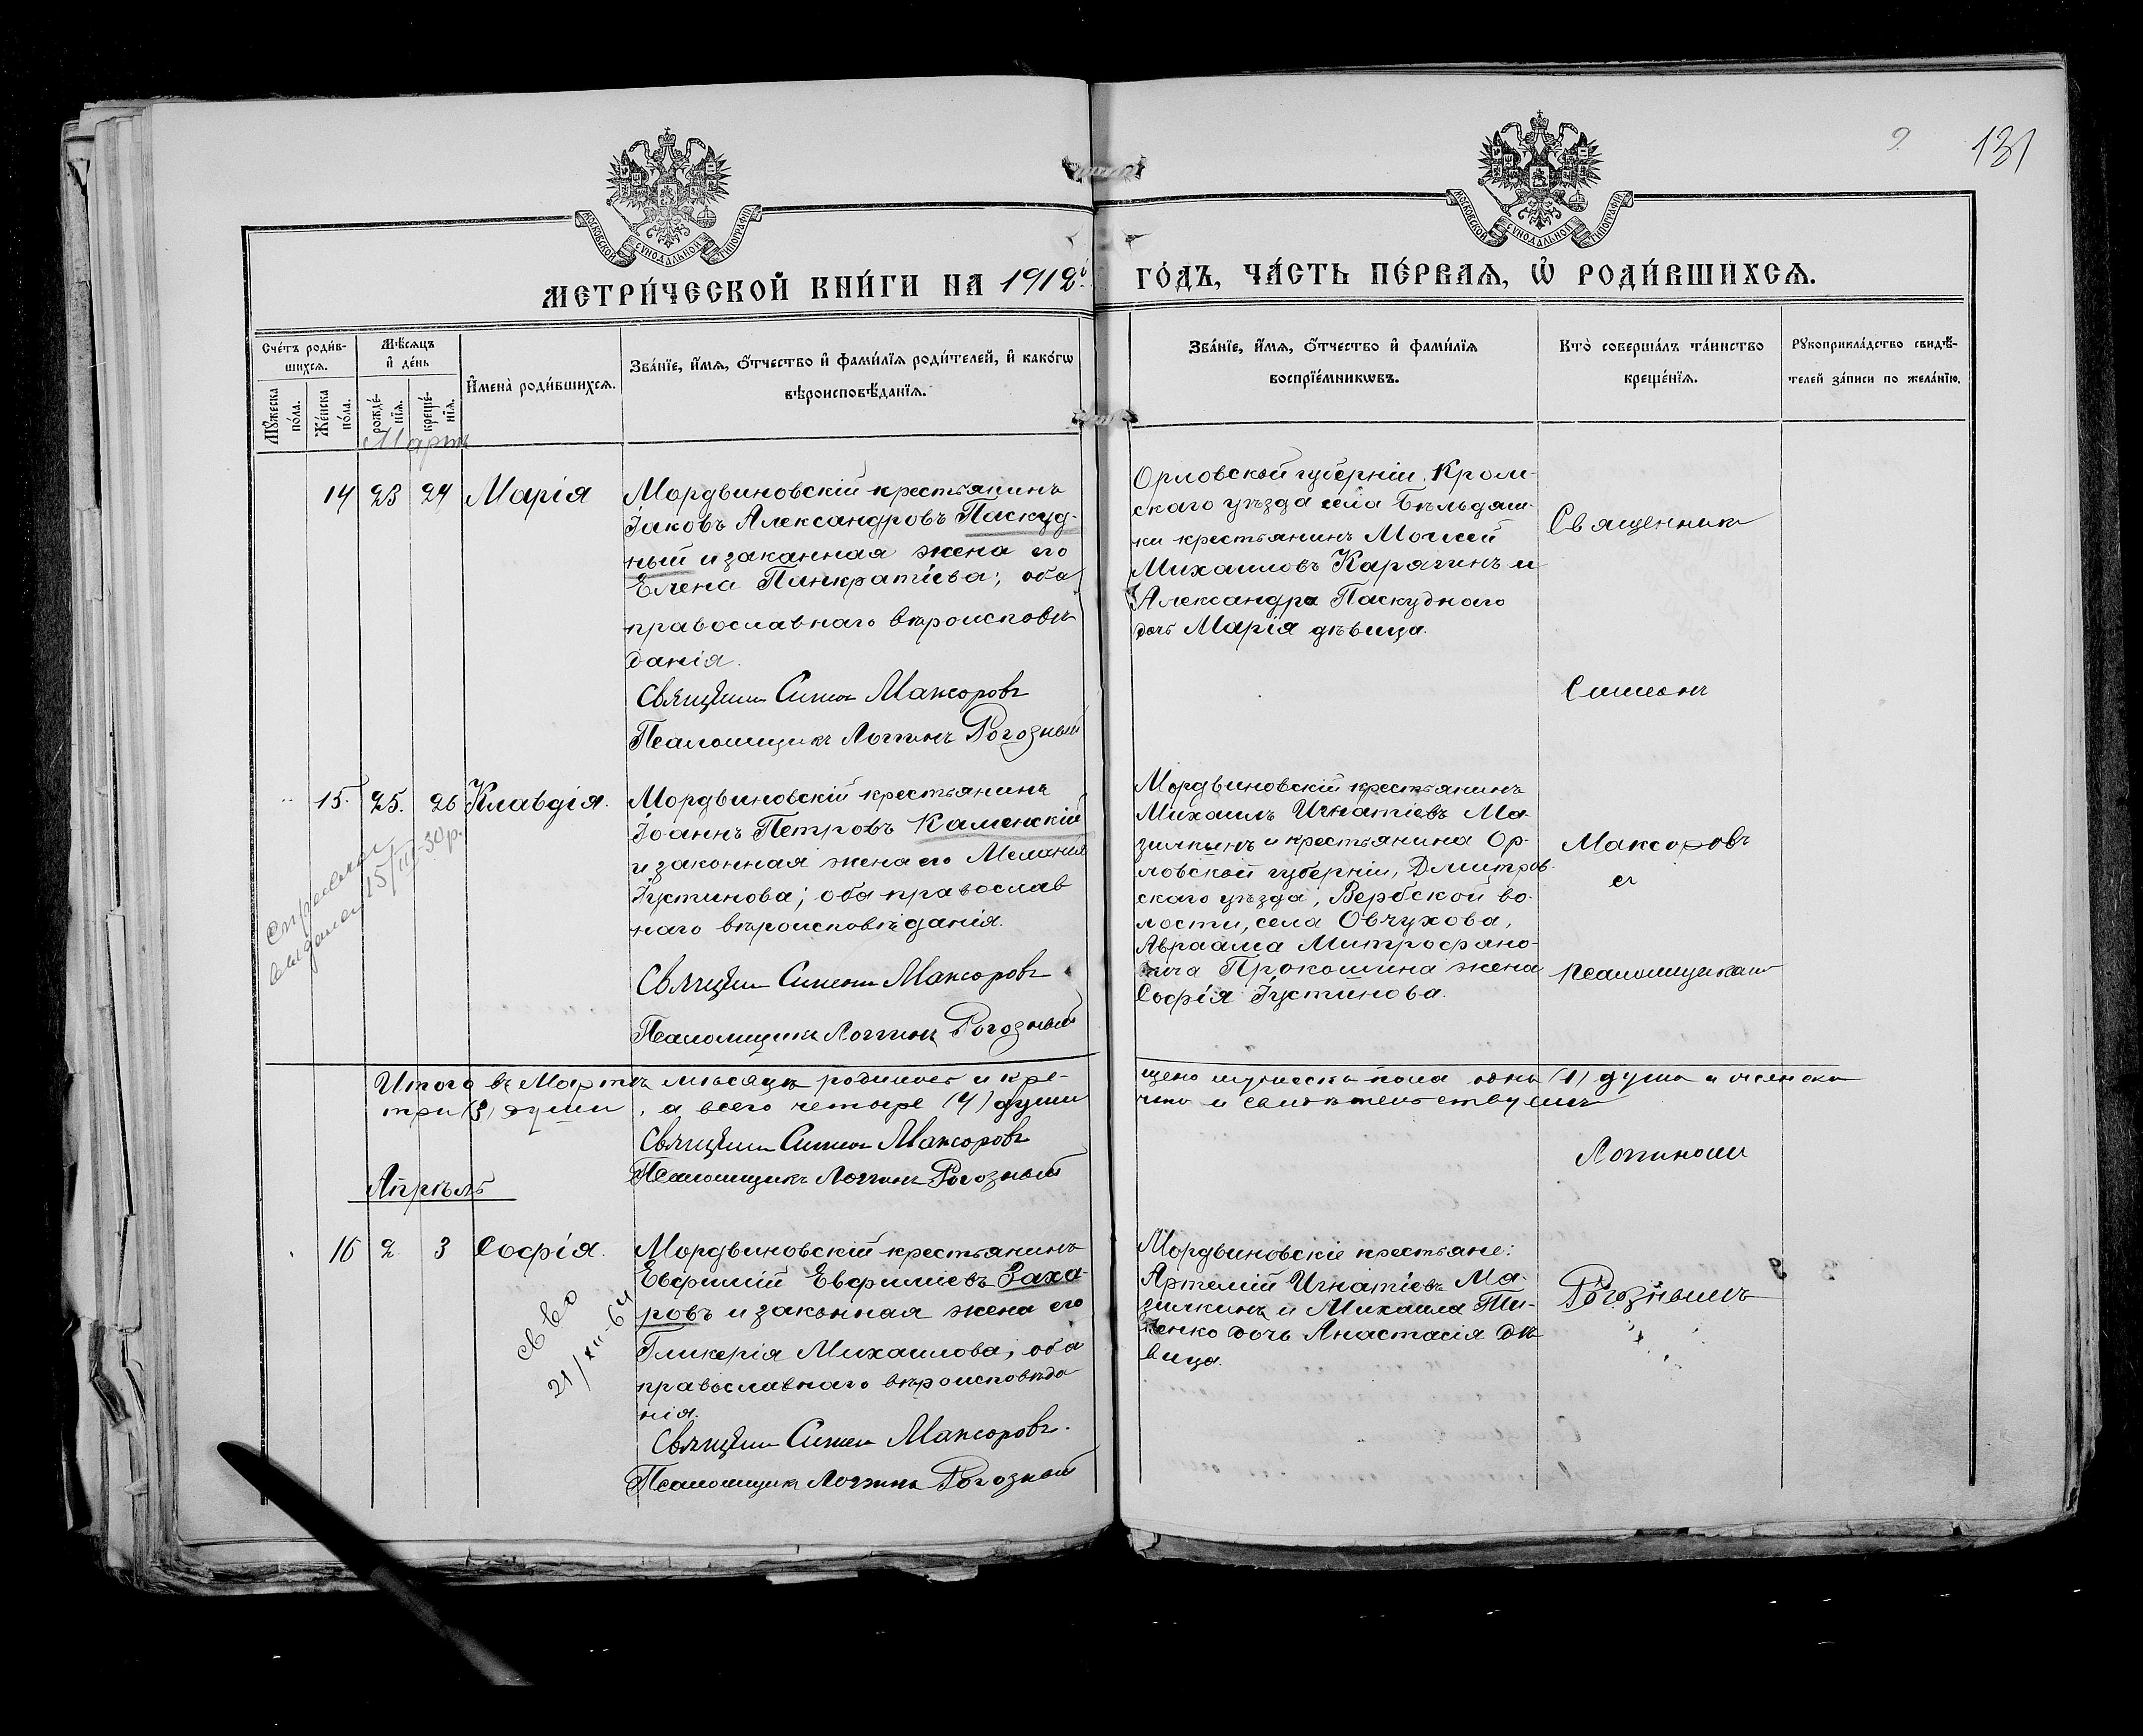 9. 131
МОСКОВСКОЙ СУНОДАЛЬНОЙ ТИПОГРАФІИ
МОСКОВСКОЙ СУНОДАЛЬНОЙ ТИПОГРАФІИ
МЕТРИ́ЧЕСКОЙ КНИ́ГИ НА 1912й ГО́ДЪ, ЧА́СТЬ ПЕ́РВАѦ, Ѽ РОДИ́ВШИХСѦ.
Сче́тъ роди́в-
шихсѧ.
Мꙋ́жеска по́ла.
Же́нска по́ла.
Мѣ́сѧцъ
и҆ де́нь
рожде́-
нїѧ.
креще́-
нїѧ.
И҆мена̀ роди́вшихсѧ.
Зва́нїе, и҆́мѧ, ѻ҆́тчество и҆ фами́лїѧ роди́телей, и҆ како́гѡ
вѣроисповѣ́данїѧ.
Зва́нїе, и҆́мѧ, ѻ҆́тчество и҆ фами́лїѧ
воспрїе́мникѡвъ.
Кто̀ соверша́лъ та́инство
креще́нїѧ.
Рꙋкоприкла́дство свидѣ́-
телей за́писи по жела́нїю.
Мартъ
14 23 24 Марія
Мордвиновскій крестьянинъ
Іаковъ Александровъ Паскуд-
ный и законная жена его
Елена Панкратіева; оба
православнаго вѣроисповѣ
данія.
Священникъ Симеонъ Максоровъ
Псаломщикъ Логгинъ Рогозный
Орловской губерніи, Кром-
скаго уѣзда села Бѣльдяж-
ки крестьянинъ Моисей
Михаиловъ Карягинъ и
Александра Паскуднаго
дочь Марія дѣвица.
Священникъ
Симеонъ
15. 25. 26 Клавдія.
Мордвиновскій крестьянинъ
Іоаннъ Петровъ Каменскій
и законная жена его Меланія
Іустинова; оба православ
наго вѣроисповѣданія.
Священникъ Симеонъ Максоровъ
Псаломщикъ Логгинъ Рогозный
15/III-30 р.
Мордвиновскій крестьянинъ
Михаилъ Игнатіевъ Ма-
зилкинъ и крестьянина Ор-
ловской губерніи, Дмитров-
скаго уѣзда, Вербской во-
лости, села Овчухова,
Авраама Митрофано-
вича Прокошина жена
Софія Іустинова.
Максоровъ
съ
псаломщикомъ
Итого въ Мартѣ мѣсяцѣ родилось и кре-
щено мужеска пола одна (1) душа и женска
три (3) души, а всего четыре (4) души
что и свидѣтельствуемъ
Священникъ Симеонъ Максоровъ
Псаломщикъ Логгинъ Рогозный
Логгиномъ
Апрѣль
16 2 3 Софія.
Мордвиновскій крестьянинъ
Евфимій Евфиміевъ Заха-
ровъ и законная жена его
Гликерія Михаилова; оба
православнаго вѣроисповѣда
нія.
Священникъ Симеонъ Максоровъ.
Псаломщикъ Логгинъ Рогозный
21/XII-64
Мордвиновскіе крестьяне:
Артемій Игнатіевъ Ма-
зилкинъ и Михаила Ти-
дочь Анастасія дѣ-
вица.
Рогознымъ